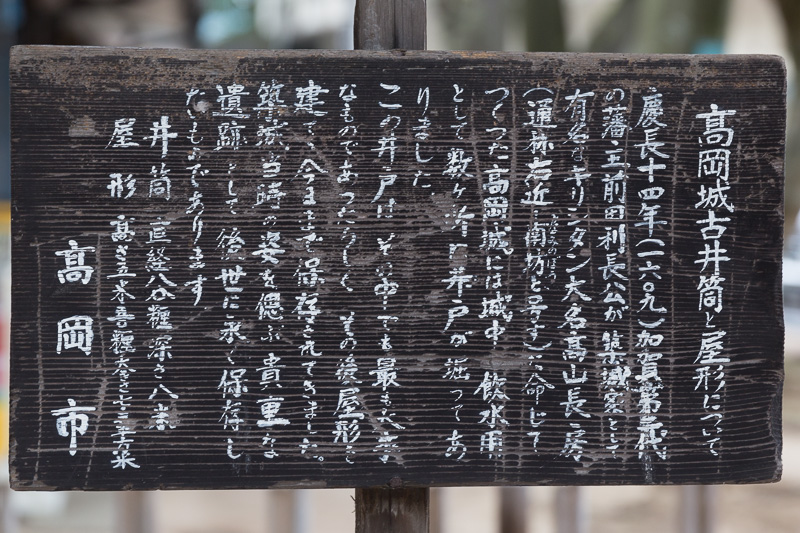 高岡城古井筒と屋形について
慶長十四年(一六〇九)加賀藩第二代
の藩主前田利長公が築城家として
有名なキリシタン大名高山長房
(通称右近 南坊と号す)に命じて
つくった高岡城には城中の飲水用
として数ヶ所に井戸が掘ってあ
りました
この井戸は その中でも最も大事
なものであったらしく その後屋形を
建てて今日まで保存されてきました。
築城当時の姿を偲ぶ貴重な
遺跡として 後世に永く保存し
たいものであります
井筒 直経八〇糎 深さ八米
屋形 高さ五米
高岡市